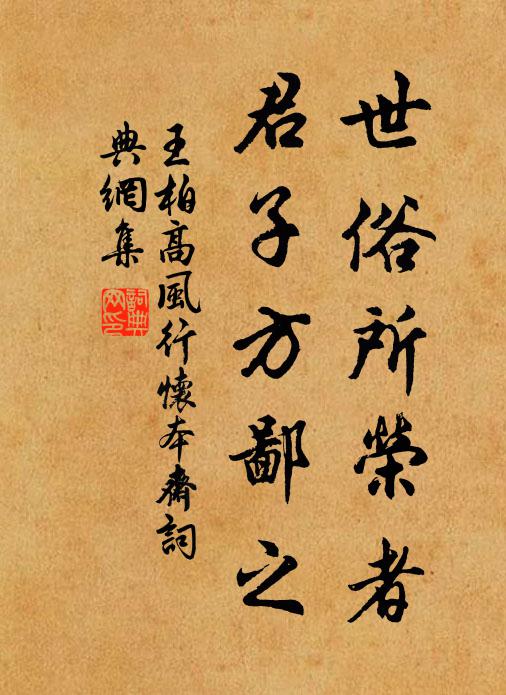 世俗所榮者
君子方鄙之
王柏高風行懷本齋詞
典網集
詞典網印